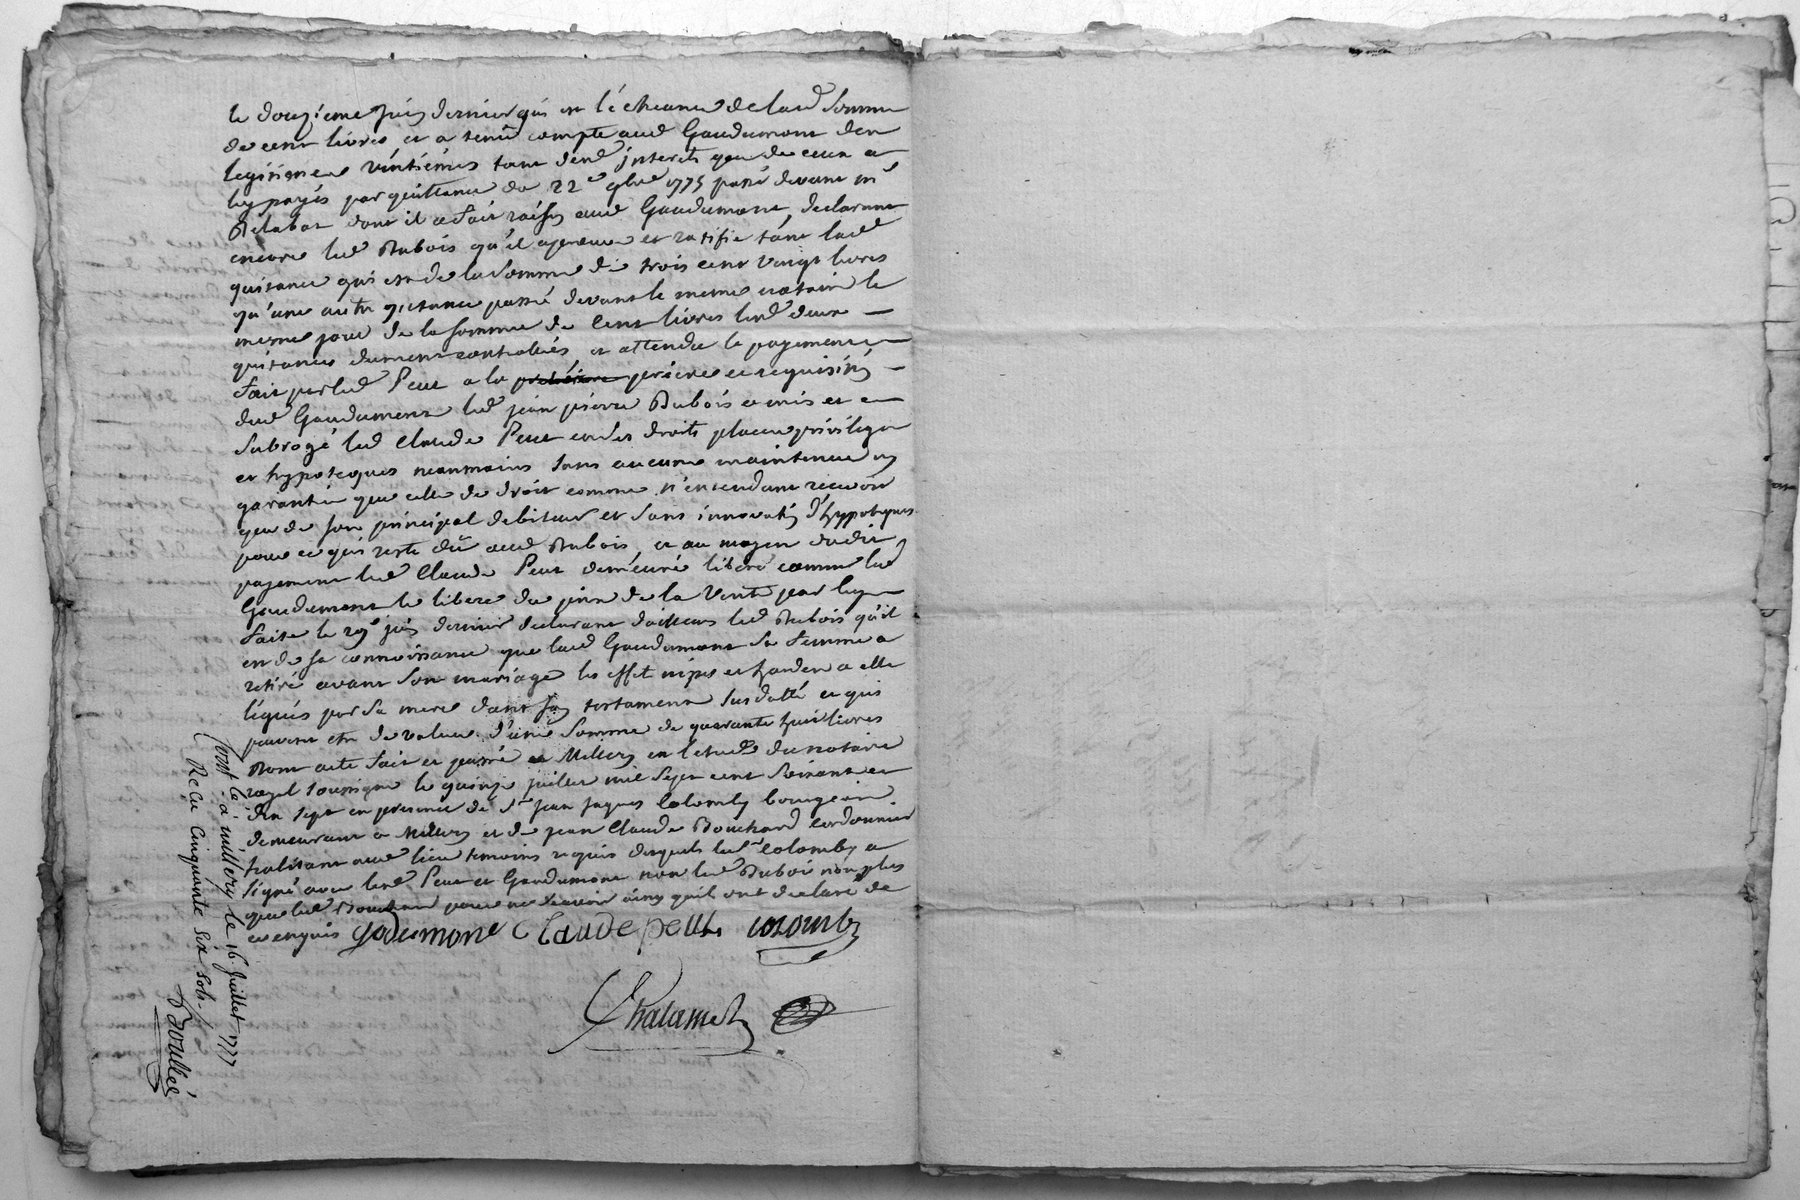 le douzieme juin dernier qui est l'écheance de lad somme
de cent livres et a tenu compte aud Gaudumont des
vintiémes tant desd interets que de ceux a
luy payés par quittance du 22e 9bre 1775 passé devant me
Delabat dont il a fait raison aud Gaudumont, declarant
encore led Dubois qu'il aprouve et ratifie tant lad
quitance qui est de la somme de trois cent vingt livres
qu'une autre quitance passé devant le meme notaire le
mesme jour de la somme de cent livres lesd deux
quitances duement controlleés, et attendu le payement
fait par led Petit a la priere et requisition
dud Gaudumont led jean pierre Dubois a mis et
subrogé led Claude Petit en ses droits place privilege
et hypoteques neanmoins sans aucune maintenue ny
garantie que celle de droit comme n'entendant recevoir
que de son principal debiteur et sans innovation d'hypoteques
pour ce qui reste dû aud Dubois, et au moyen dudit
payement led Claude Petit demeure libéré comme led
Gaudumont le libere du prix de la vente par luy
faite le 29e juin dernier declarant d'ailleurs led Dubois qu'il
est de sa connoissance que lad Gaudumont sa femme a
retiré avant son mariage les effet nipes et hardes a elle
légués par sa mere dans son testament susdatté et qui
peuvent etre de valeur d'une somme de quarante huit livres
Dont acte fait et passé a Millery en l'etude du notaire
royal soussigné le quinze juillet mil sept cent soixante et
dix sept en presence de Sr jean jaques Colomby bourgeois
demeurant a Millery et de jean Claude Bouchard cordonnier
habitant aud lieu temoins requis desquels led Sr Colomby a
signé avec lesd Petit et Gaudumont non led Dubois non plus
que led Bouchard pour ne sçavoir ainsy quil ont declaré de
ce enquis Godumont Claude petit colomby
Chalamel
Cont.lé à millery le 16 Juillet 1777
Reçu Cinquante Six sols
Droullée